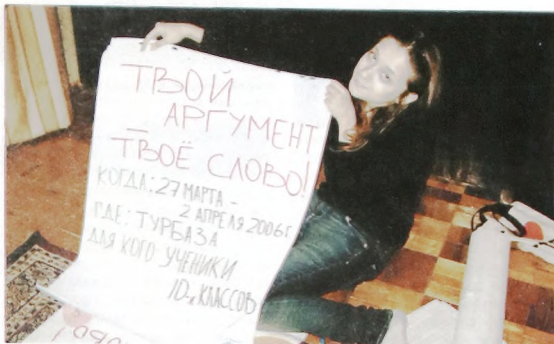 ТВОЙ
АРГУМЕНТ
— ТВОЁ СЛОВО!
КОГДА: 27 МАРТА -
2 АПРЕЛЯ 2006 г
ГДЕ: ТУРБАЗА
ДЛЯ КОГО УЧЕНИКИ
10-х КЛАССОВ